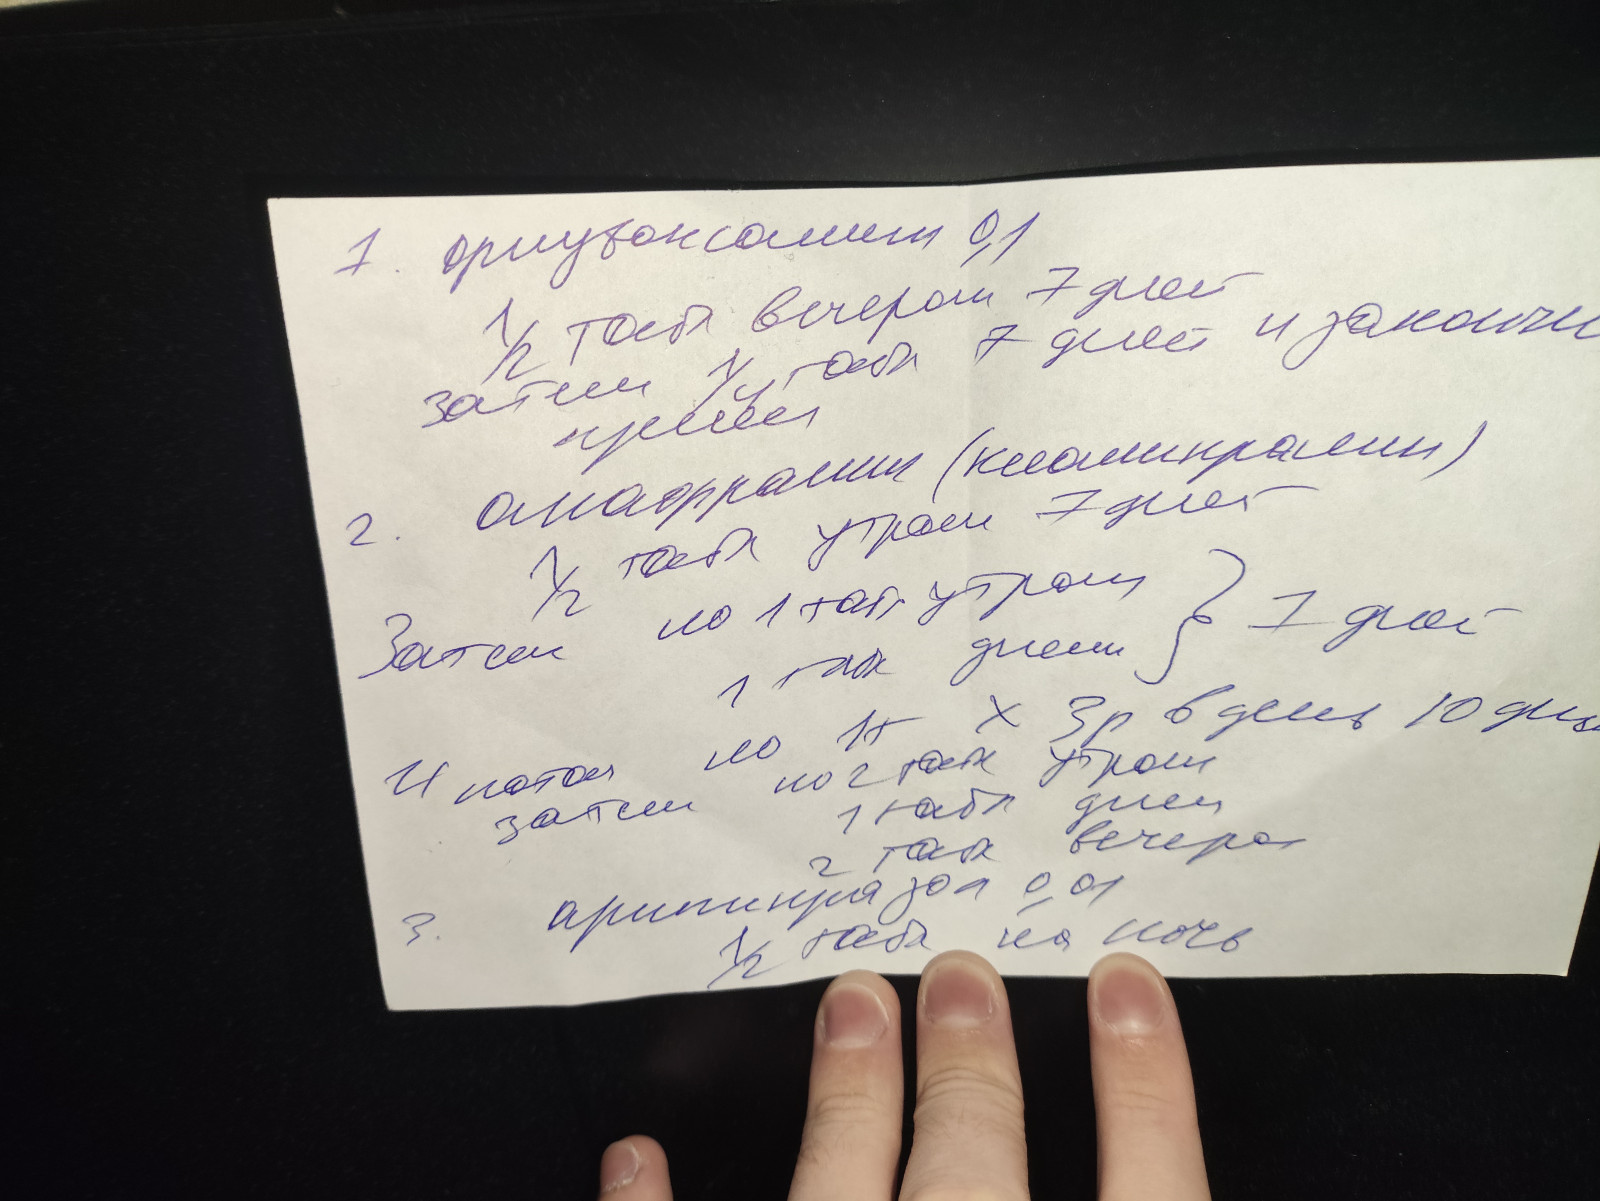 1. флувоксамин 0,1
1/2 табл вечером 7 дней
затем 1/4 табл 7 дней и закончи
прием
2. анафранил (кломипрамин)
1/2 табл утром 7 дней
Затем по 1 таб утром } 7 дней
1 таб днем
И потом по 1т х 3р в день 10 дне
затем по 2 таб утром
1 табл днем
2 таб вечеро
3. арипипразол 0,01
1/2 табл на ночь